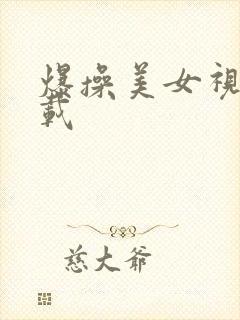 爆操美女視
載
慈大爺